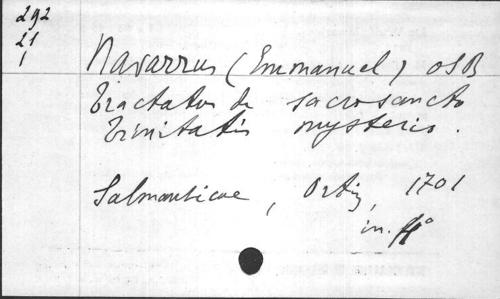 292
21
1
Navarrus (Emmanuel) OSB
Tractatus de sacrosancto
Trinitatis mysterio.
Salmanticae, Ortiz, 1701
in. fº